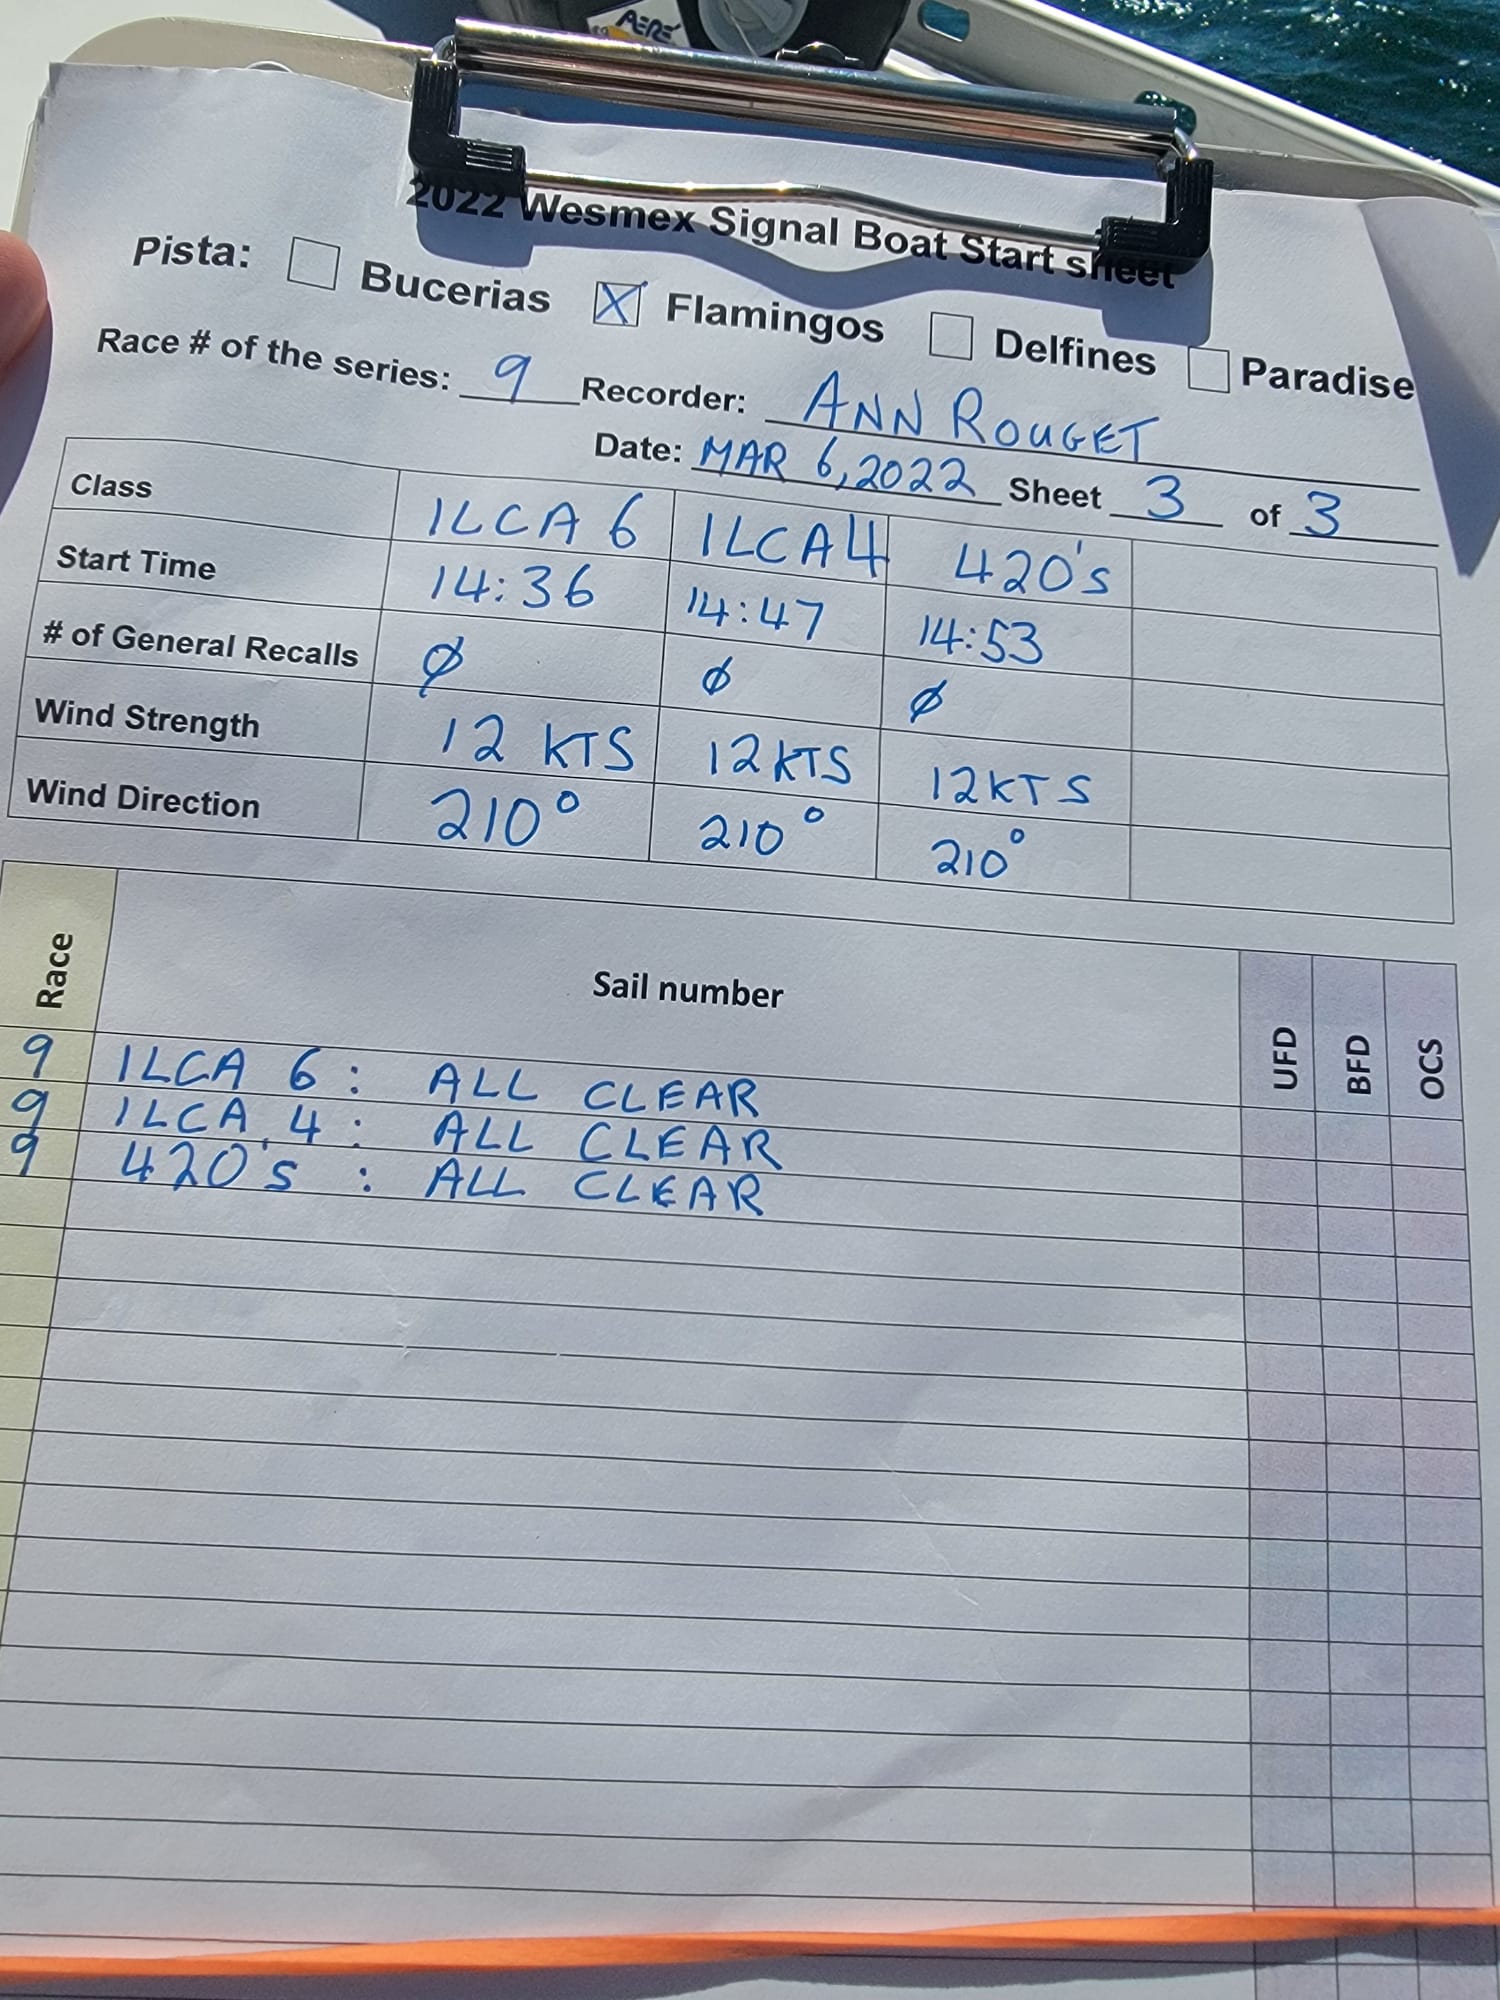 AERÉ
2022 Wesmex Signal Boat Start sheet
Pista: Bucerias X Flamingos Delfines Paradise
Race # of the series: 9 Recorder: ANN ROUGET
Date: MAR 6, 2022 Sheet 3 of 3
Class ILCA 6 ILCA 4 420's
Start Time 14:36 14:47 14:53
# of General Recalls Ø Ø Ø
Wind Strength 12 KTS 12 KTS 12 KTS
Wind Direction 210° 210° 210°
Race Sail number UFD BFD OCS
9 ILCA 6 : ALL CLEAR
9 ILCA 4 : ALL CLEAR
9 420's : ALL CLEAR